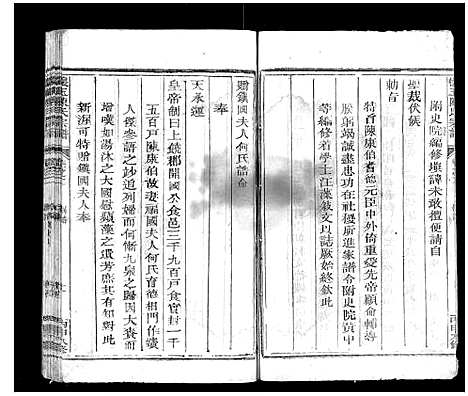 附史院編修填諱未敢擅便請自
裁伏候
勅旨
特旨陳康伯耆德元臣中外倚重受先帝顧命輔導
朕躬竭誠盡忠功在社稷所進家譜令附史院寘中
祕仍令編修着學士汪藻敘文以誌厥始終欽此
贈鎮國夫人何氏誥命
奉
天承運
皇帝制曰上饒郡開國公食邑三千九百戶食實封一千
五百戶陳康伯故妻福國夫人何氏育德相門作嬪
人傑參語之妙道列婦而何慚九泉之歸國大賚而
增嘆如湯沐之大國慰蘋藻之遺芳庶其有知歆此
新渥可特贈鎮國夫人奉